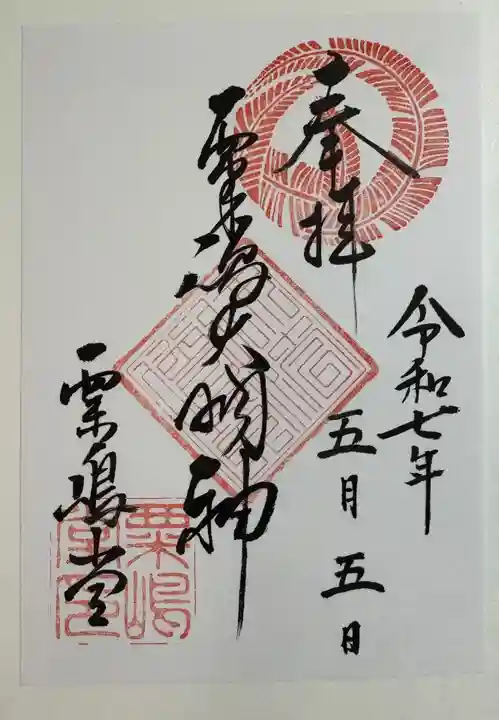 奉拝
令和七年
五月五日
粟嶋大明神
粟嶋堂
粟嶋